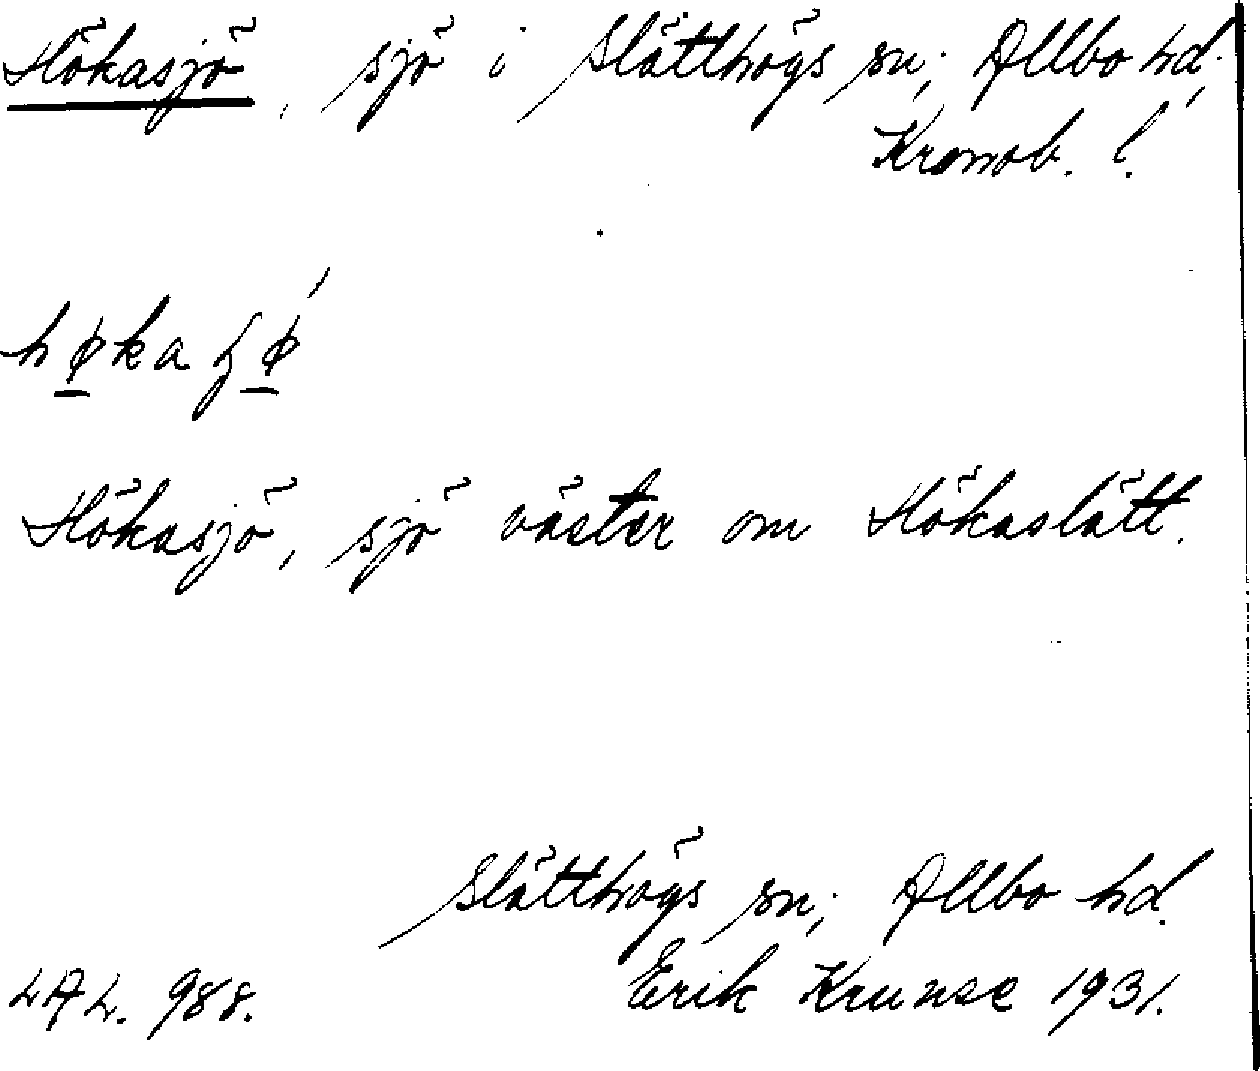 Hökasjö, sjö i Slätthögs sn; Allbo hd;
Kronob. l.
høkaʒø´
Hökasjö, sjö väster om Hökaslätt.
Slätthögs sn; Allbo hd.
LAL. 988. Erik Krunse 1931.